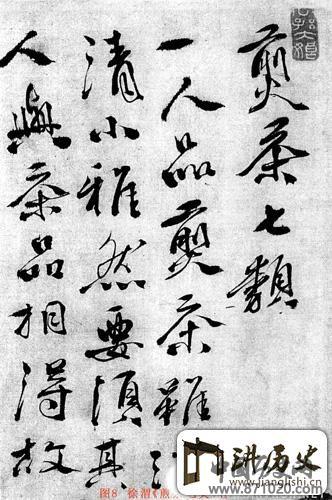 煎茶七類
一人品煎茶雖
清小雅然要須其
人與茶品相得故
图8 徐渭《煎
讲历史
www.jianglishi.cn
www.871020.com